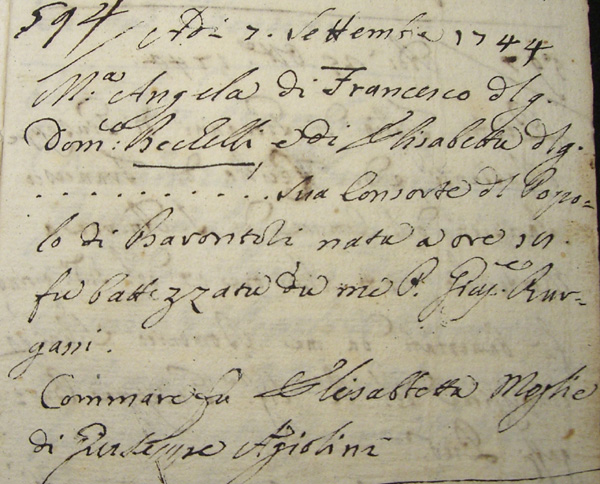 594 Adi 7. Settembre 1744
M.ª Angela di Francesco dlg.
Dom.co Beclelli e di Elisabetta dlg.
. . . . . . . . . . . sua Consorte dl Popo=
lo di Barontoli nata a ore
fu battezzata da me P. Gius.e Bur=
gassi.
Commare fu Elisabetta Moglie
di Giuseppe Agiolini